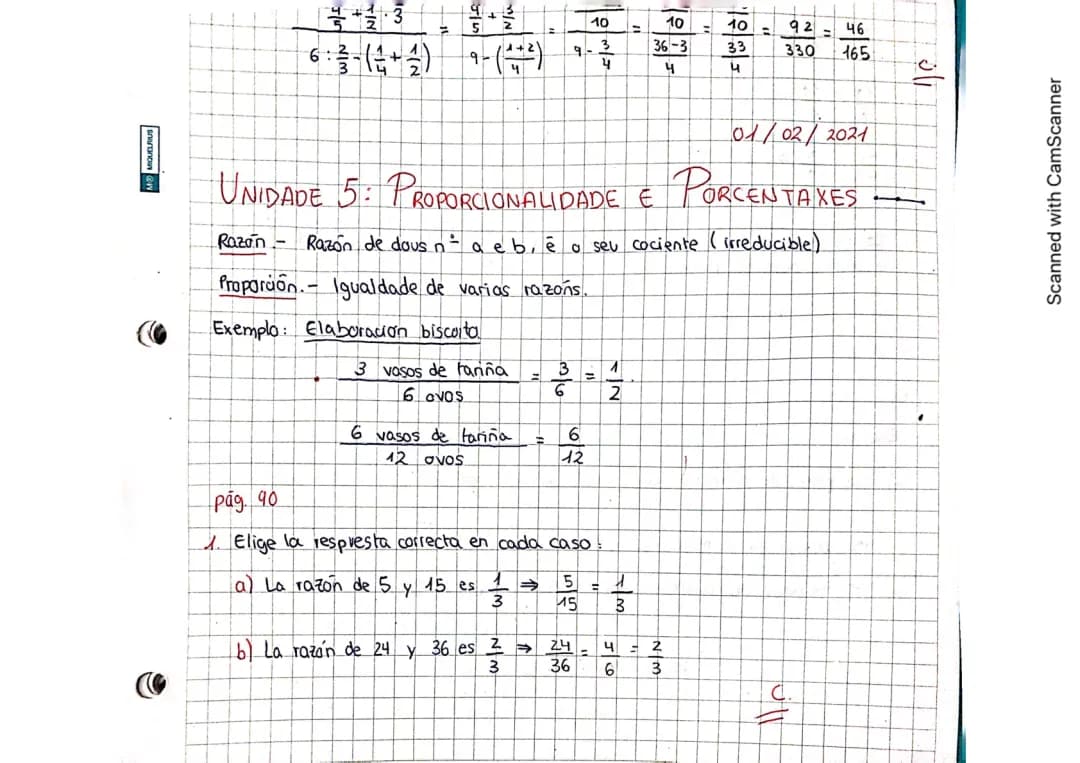 4/5 + 1/2 · 3 / 6 : 2/3 - (1/4 + 1/2) = 4/5 + 3/2 / 9 - (1+2/4) = 10 / 9 - 3/4 = 10 / 36-3/4 = 10 / 33/4 = 92/330 = 46/165
C.
01/02/2021
UNIDADE 5: PROPORCIONALIDADE E PORCENTAXES
Razón.- Razón de dous nº a e b, é o seu cociente (irreducible)
Proporción.- Igualdade de varias razóns.
Exemplo: Elaboracion biscoito
3 vasos de fariña / 6 ovos = 3/6 = 1/2.
6 vasos de fariña / 12 ovos = 6/12
pág. 90
1. Elige la respuesta correcta en cada caso:
a) La razón de 5 y 15 es 1/3 ⇒ 5/15 = 1/3
b) La razón de 24 y 36 es 2/3 ⇒ 24/36 = 4/6 = 2/3
C.
MIQUELRIUS
Scanned with CamScanner